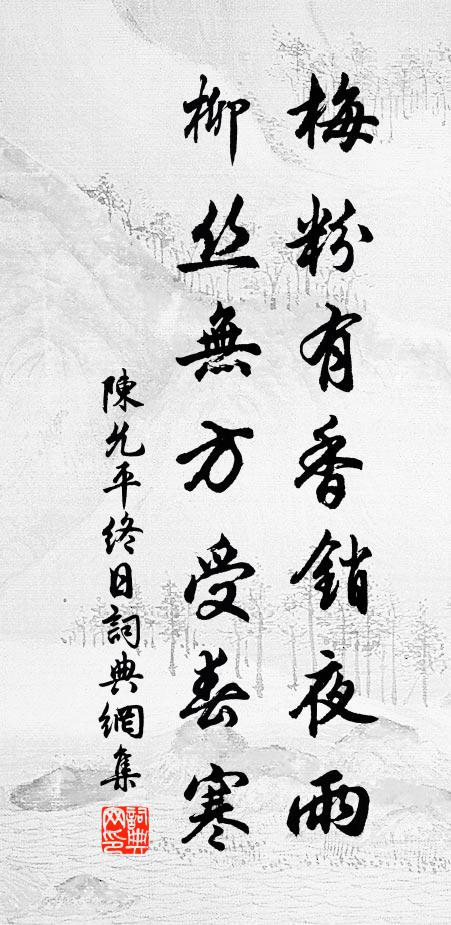 梅粉有香銷夜雨
柳丝無方受春寒
陳允平終日詞典網集
詞典网印